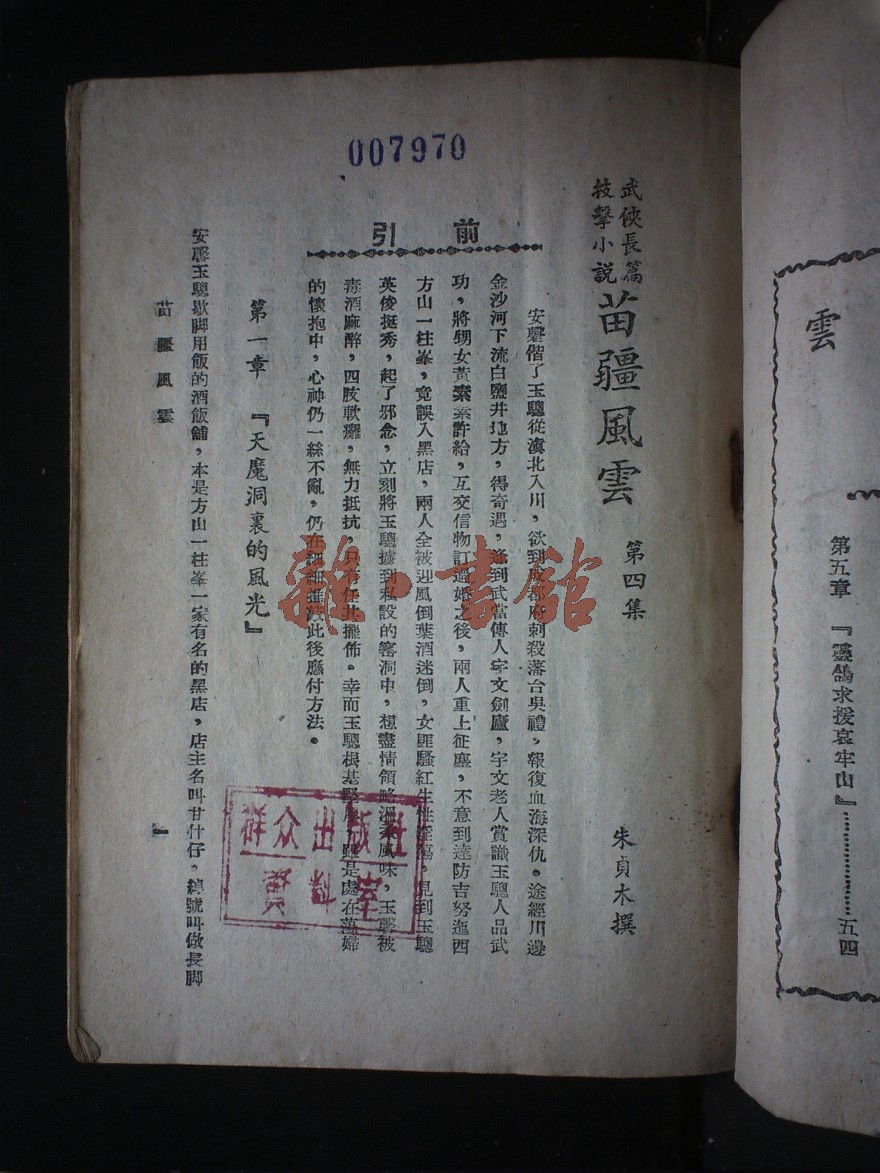 007970
武俠長篇
技擊小説
苗疆風雲 第四集
朱貞木撰
前引
安磬偕了玉驄從滇北入川，欲到成都府刺殺藩台吳禮，報復血海深仇。途經川邊
金沙河下流白鹽井地方，得奇遇，逢到武當傳人宇文劍廬，宇文老人賞識玉驄人品武
功，將甥女黃素素許給，互交信物訂過婚之後，兩人重上征塵，不意到達防吉努迤西
方山一柱峯，竟誤入黑店，兩人全被迎風倒葉酒迷倒，女匪騷紅生性淫蕩，見到玉驄
英俊挺秀，起了邪念，立刻將玉驄擄到私設的窰洞中，想盡情領略溫柔風味，玉驄被
毒酒麻醉，四肢軟癱，無力抵抗，只有任其擺佈。幸而玉驄根基堅厚，雖是處在蕩婦
的懷抱中，心神仍一絲不亂，仍在細細推敲此後應付方法。
第一章 『天魔洞裏的風光』
安磬玉驄歇脚用飯的酒飯舖，本是方山一柱峯一家有名的黑店，店主名叫甘什仔，綽號叫做長脚
苗疆風雲
一
群众出版社
資料室
雜·書館
雲
第五章 『靈鴿求援哀牢山』…………………五四